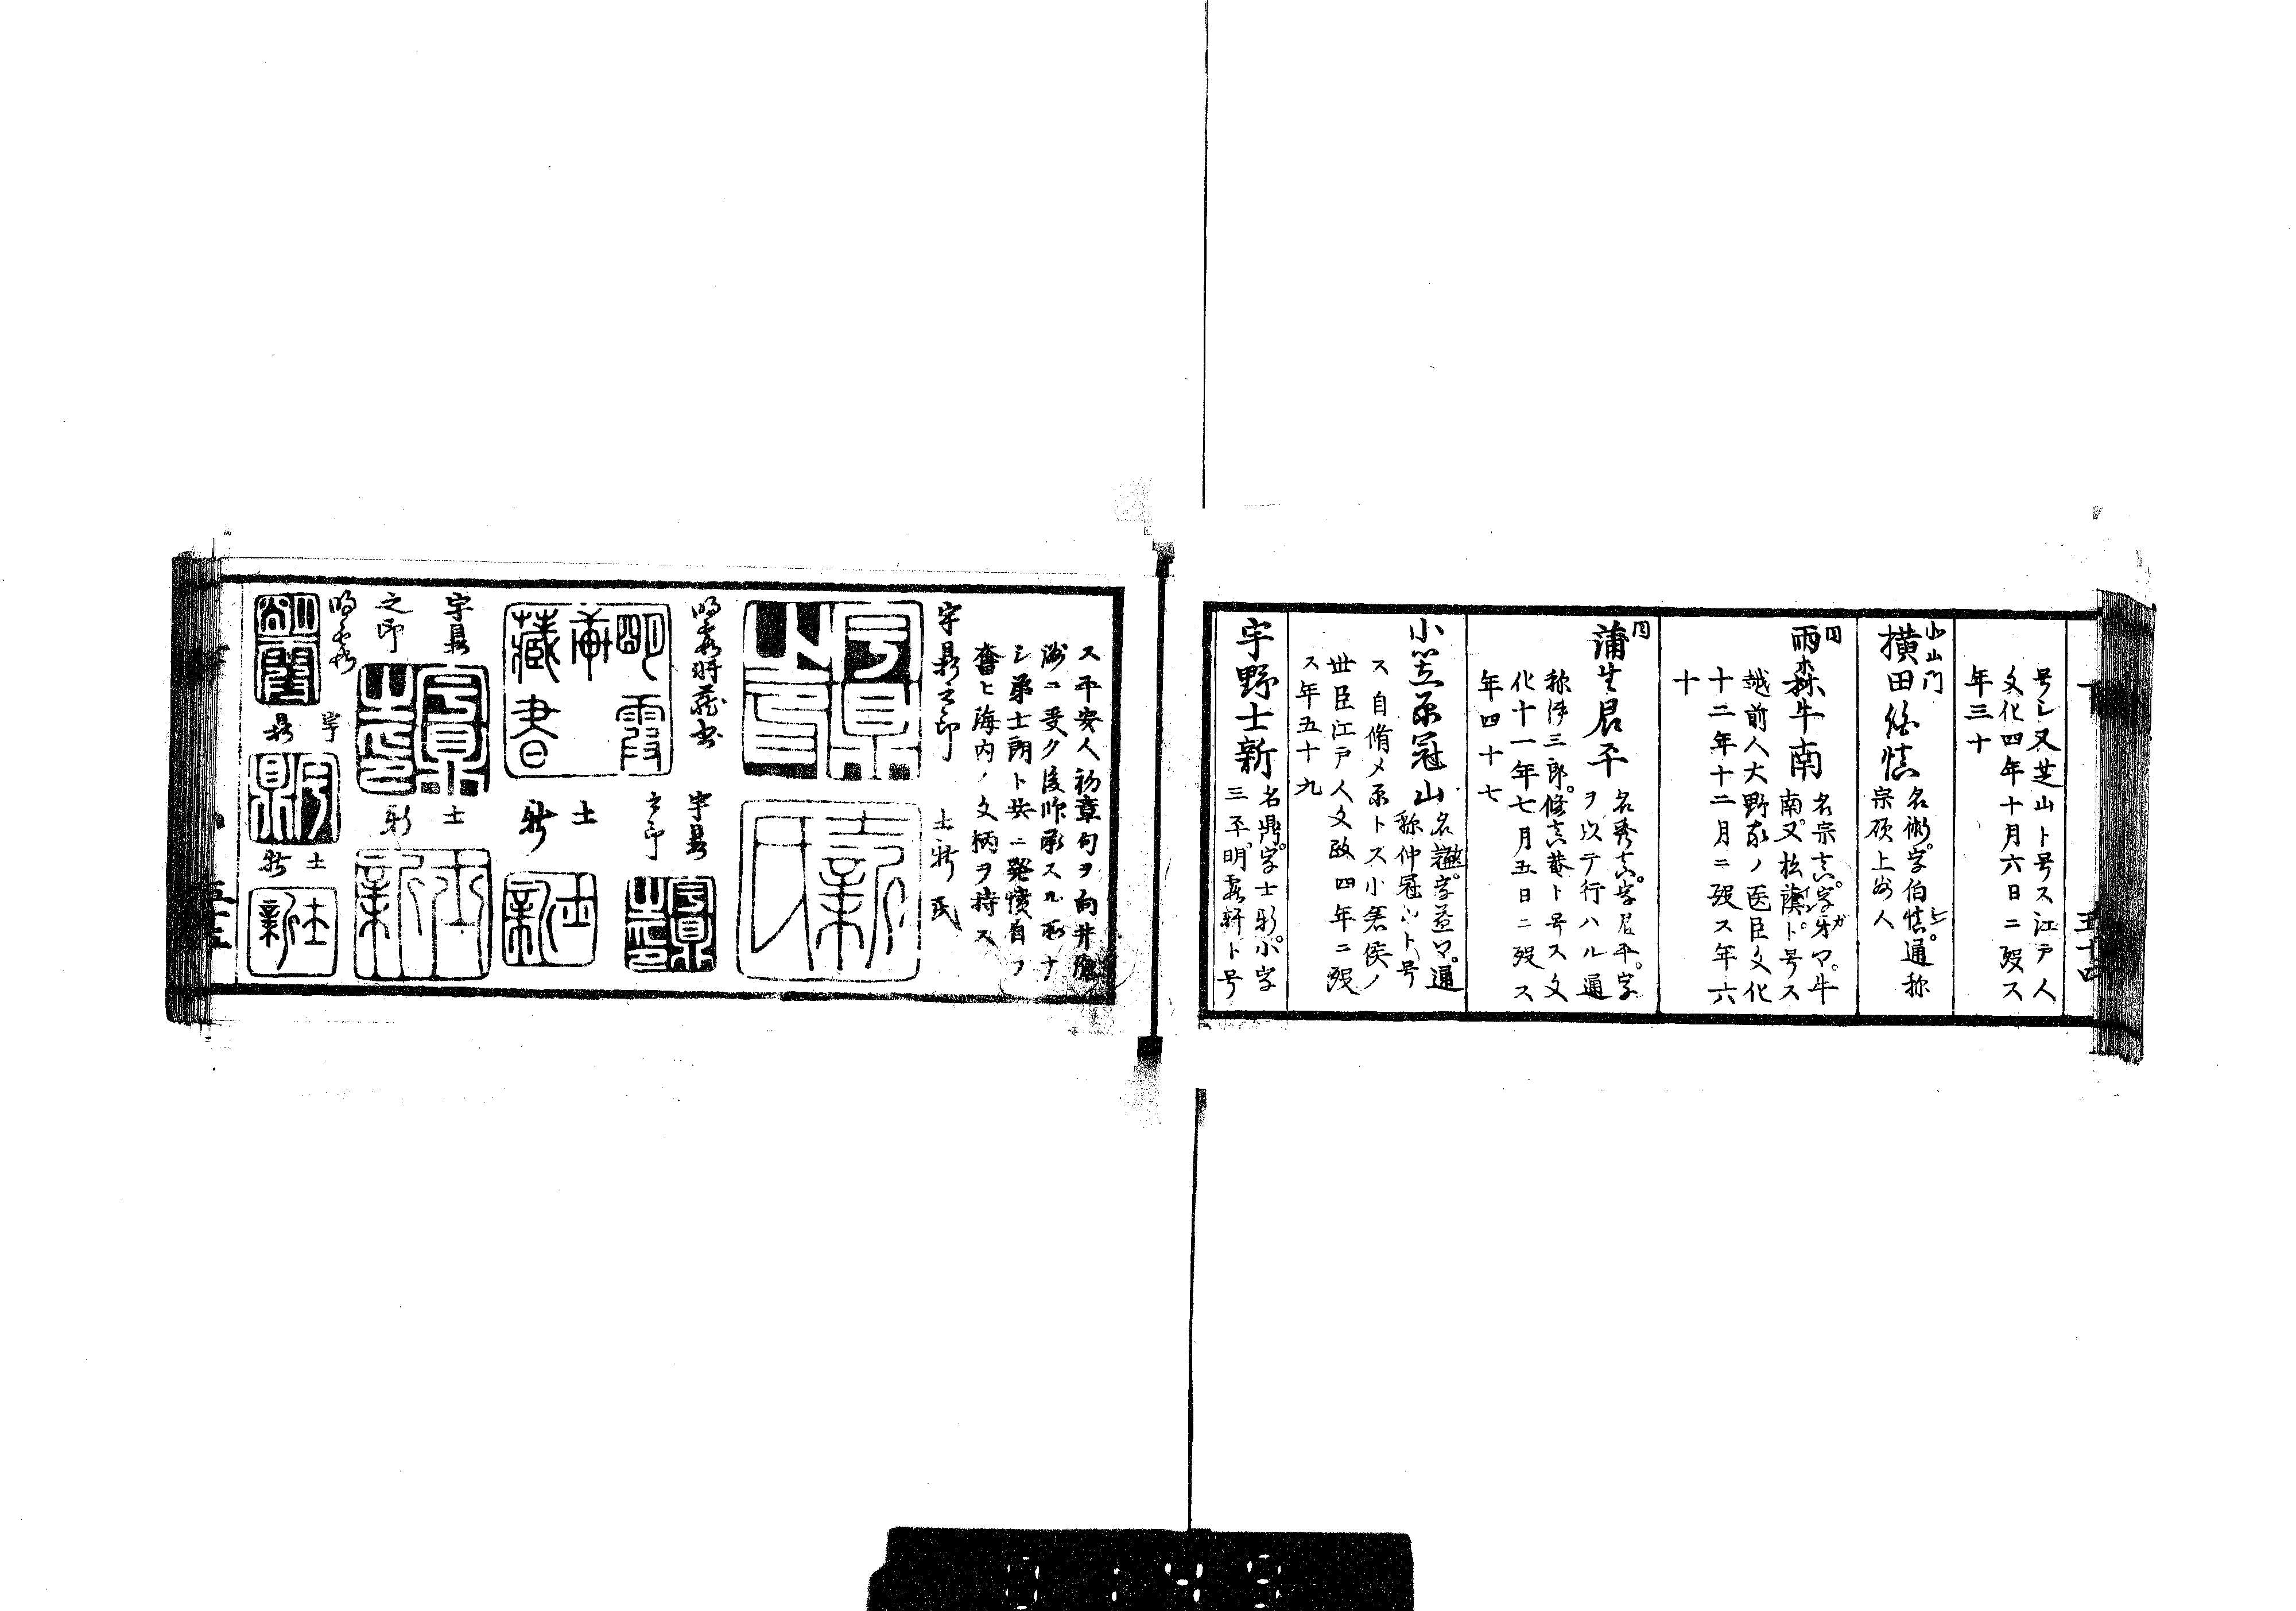 号シ又芝山ト号ス江戸人
文化四年十月六日ニ歿ス
年三十
北山門
横田
名術字伯慎通称
宗碩上州人
同
雨森牛南
名宗真字牙マ牛
南又松蔭ト号ス
越前人大野家ノ医臣文化
十二年十二月ニ歿ス年六
十
同
蒲生君平
名秀実字君平字
ヲ以テ行ハル通
称伊三郎修静菴ト号ス文
化十一年七月五日ニ歿ス
年四十七
小笠原冠山
名謙字益マ通
称仲冠山ト号
ス自脩メ原トス小倉侯ノ
世臣江戸人文政四年ニ歿
ス年五十九
宇野士新
名鼎字士新小字
三平明霞軒ト号
ス平安人初章句ヲ向井滄
洲ニ受ク後師承スル所ナ
シ弟士朗ト共ニ発憤自ラ
奮ヒ海内ノ文柄ヲ持ス
宇鼎之印
士新氏
明霞軒蔵書
宇鼎
之印
士
新
宇鼎
之印
士
新
明霞
宇
鼎
士
新
五十四